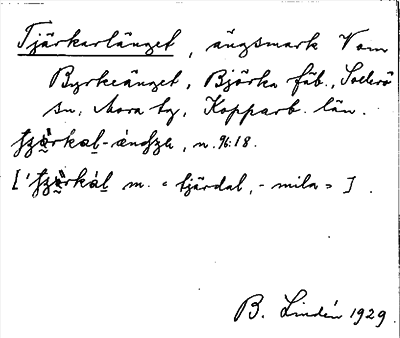 Tjärkarlänget, ängsmark V om
Byrkeänget, Björka fäb., Sollerö
sn, Mora tg, Kopparb. län.
-ändza, n. 96:18.
m. = fjärdal, - mila = ] .
B. Lindén 1929